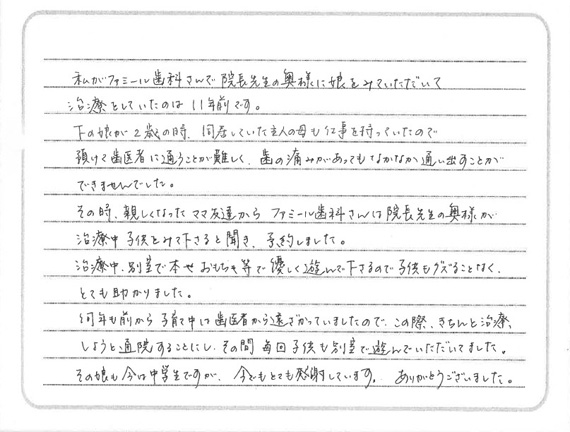 私がファミール歯科さんで院長先生の奥様に娘をみていただいて
治療をしていたのは11年前です。
下の娘が2歳の時、同居していた主人の母も仕事を持っていたので
預けて歯医者に通うことが難しく、歯の痛みがあってもなかなか通い出すことが
できませんでした。
その時、親しくなったママ友達から ファミール歯科さんは院長先生の奥様が
治療中子供をみて下さると聞き、予約しました。
治療中、別室で本やおもちゃ等で優しく遊んで下さるので子供もグズることなく、
とても助かりました。
何年も前から子育て中は歯医者から遠ざかっていましたので、この際、きちんと治療
しようと通院することにし、その間毎回子供も別室で遊んでいただいてました。
その娘も今は中学生ですが、今でもとても感謝しています。ありがとうございました。